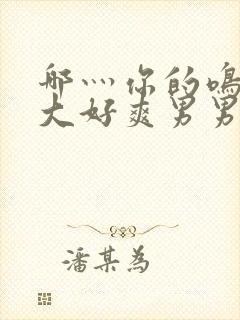 哪灬你的鳴
大好爽男男
潘某為